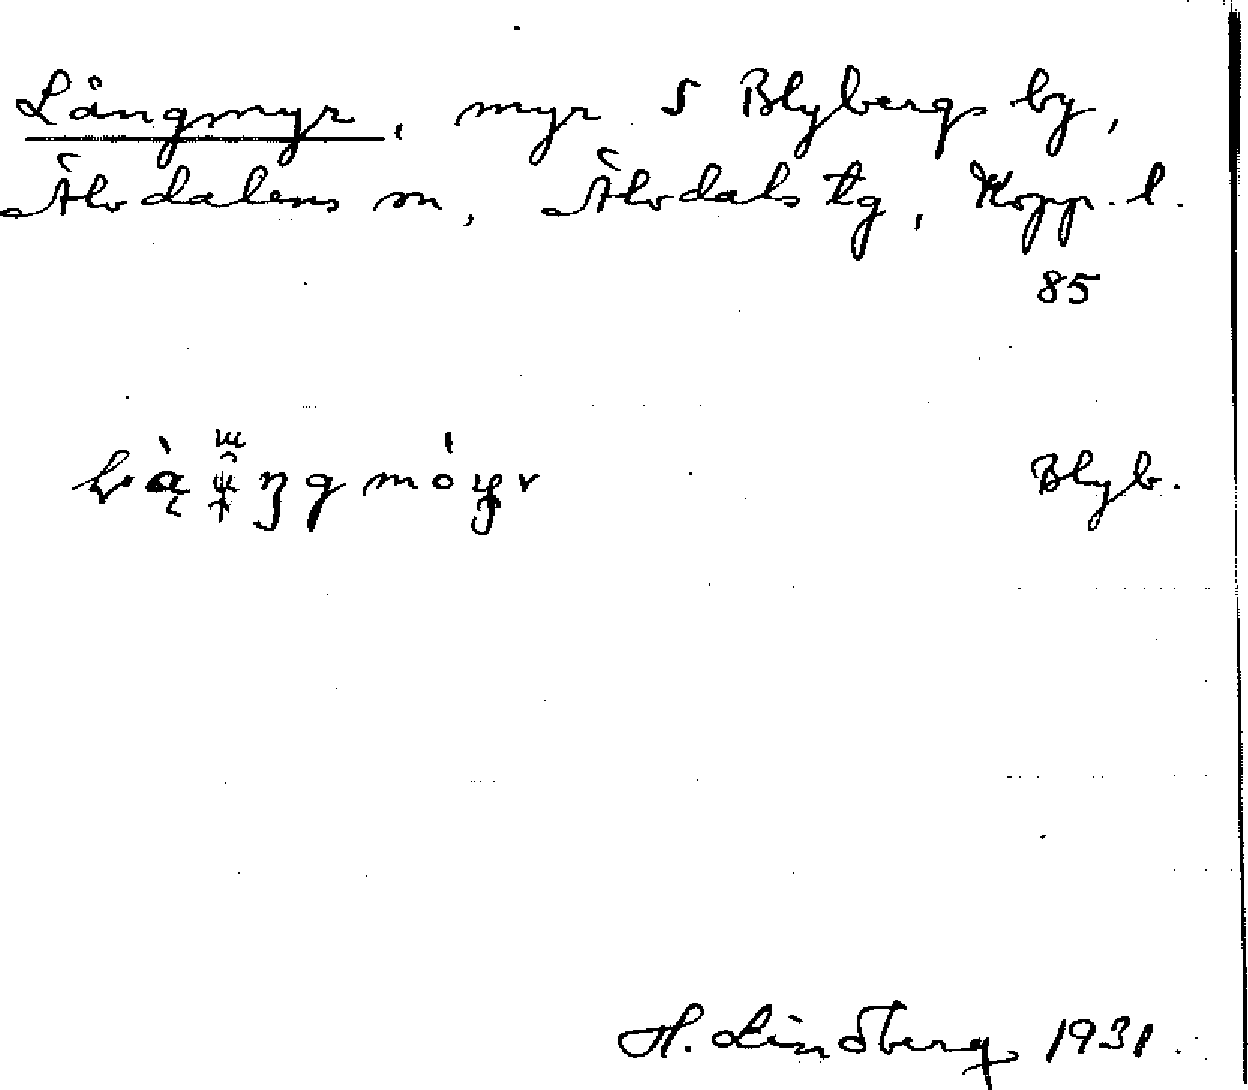 Långmyr, myr S Blybergs by,
Älvdalens sn, Älvdals tg, Kopp. l.
85
Blyb.
H. Lindberg 1931.